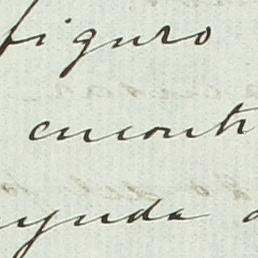 figuro
encontr
ayuda